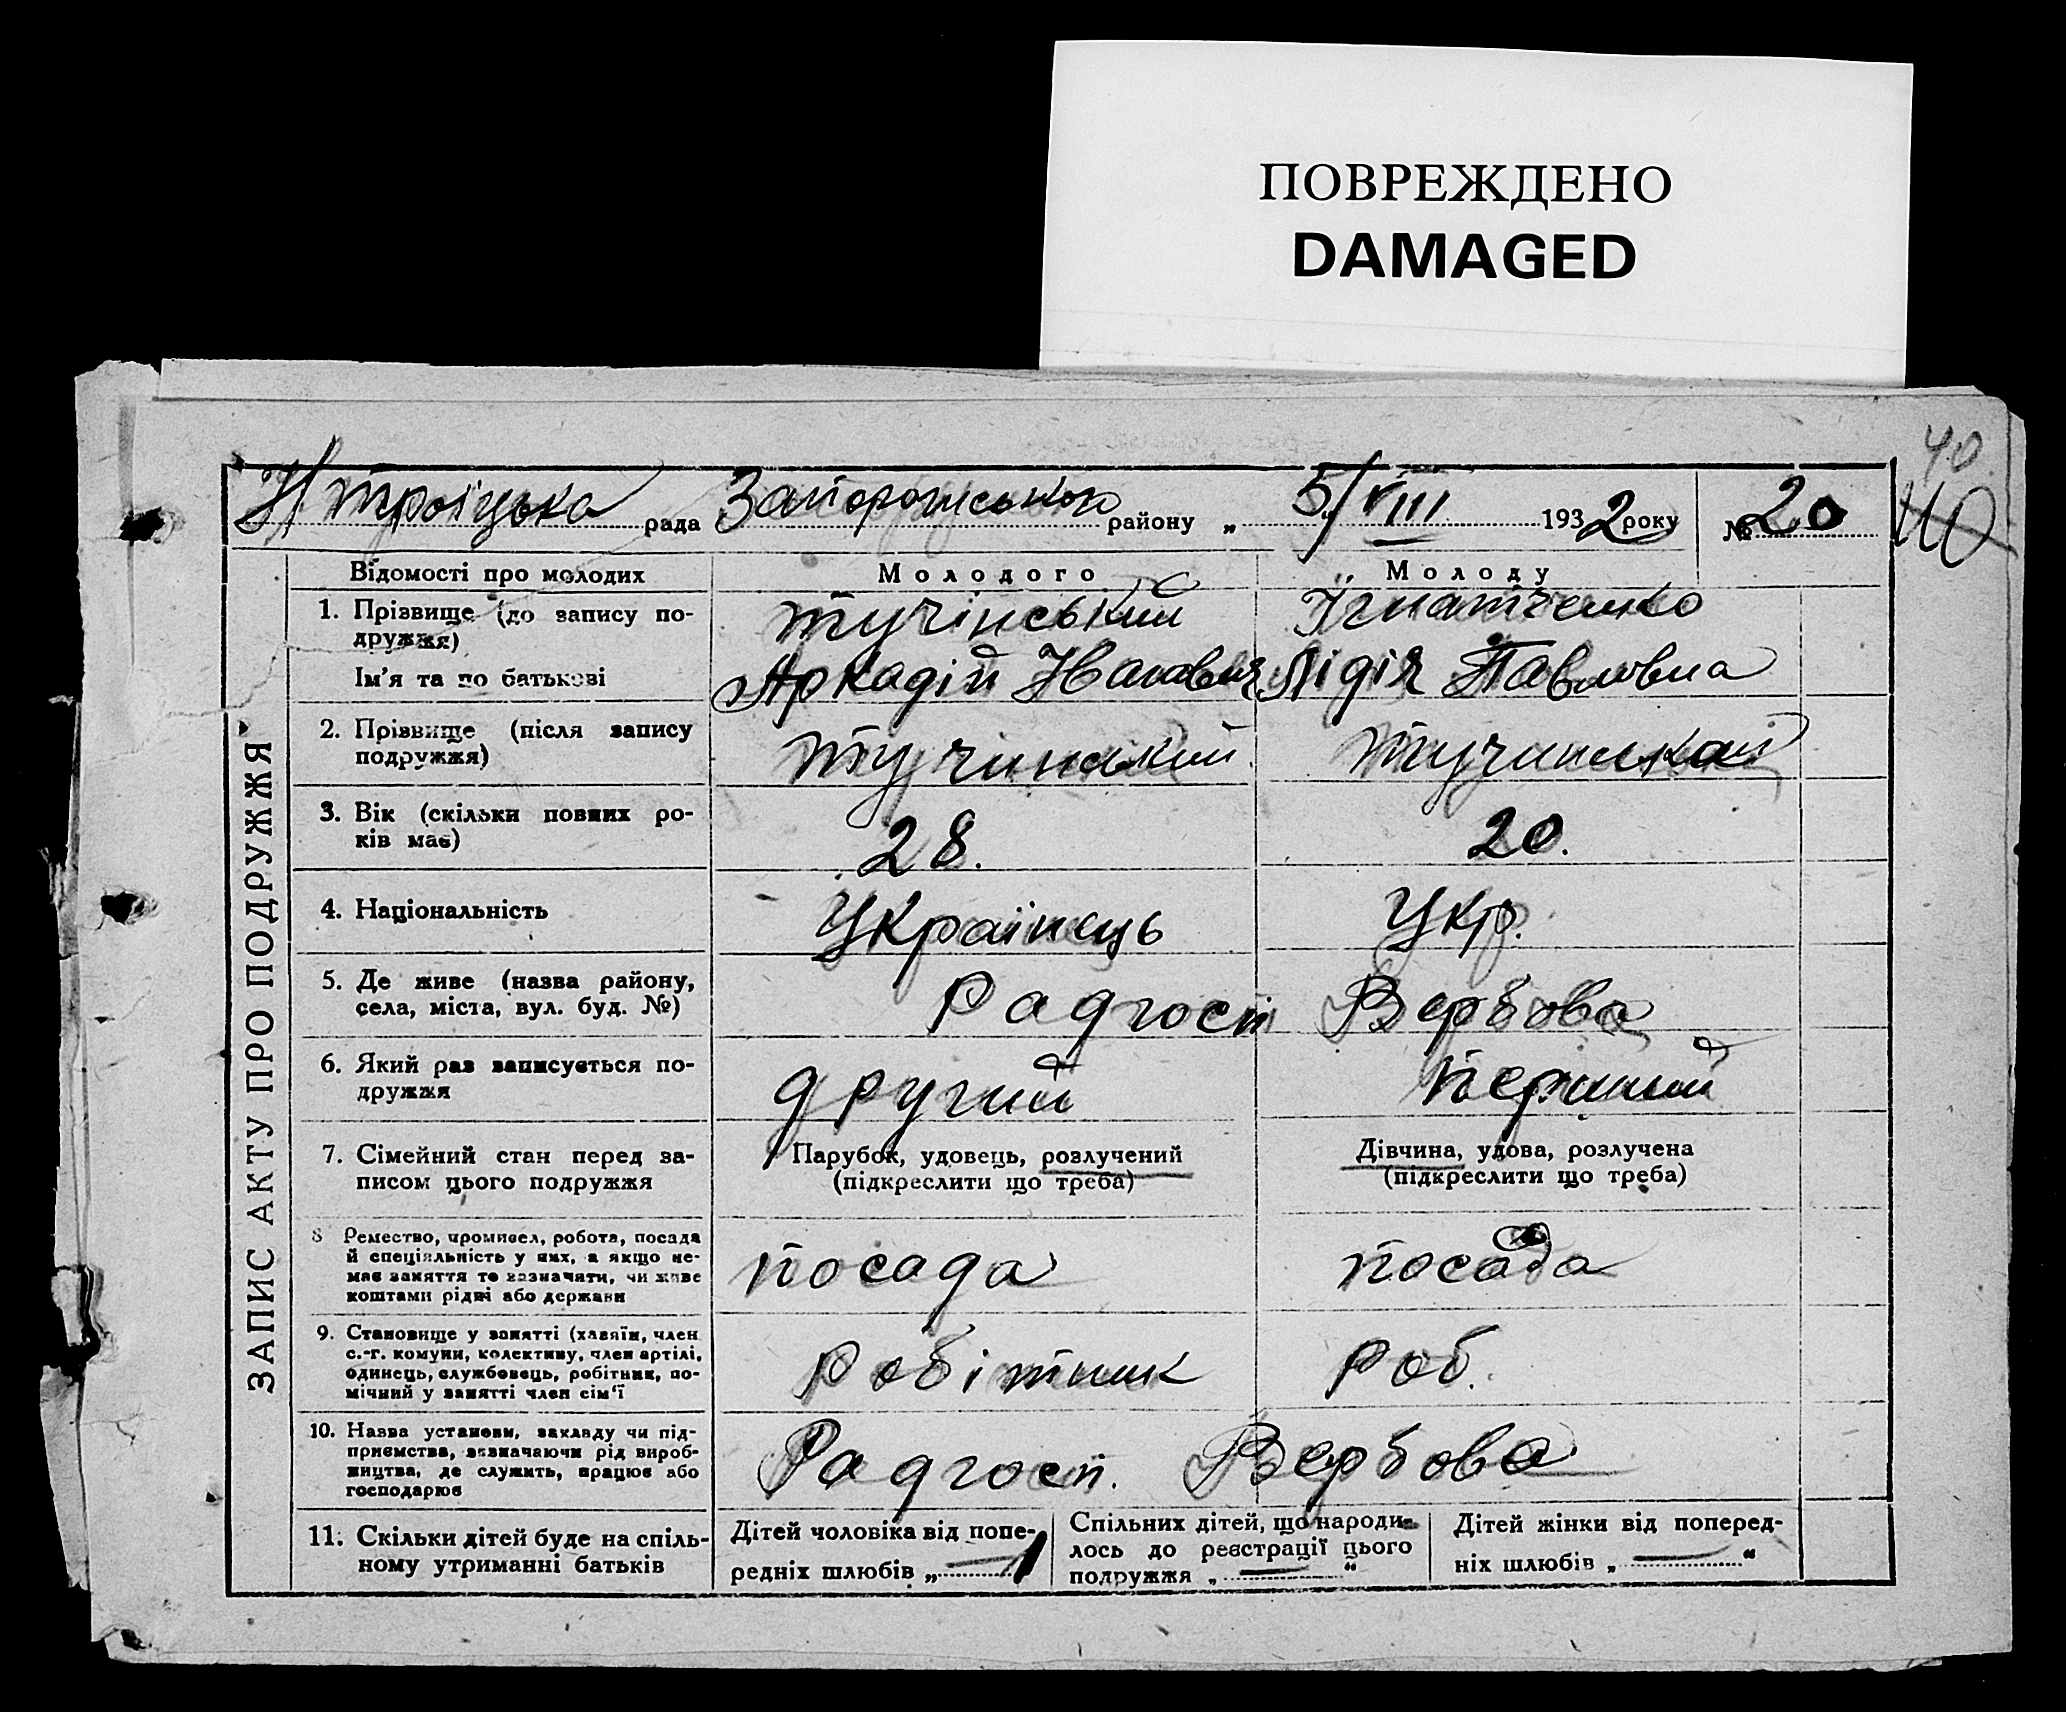 ПОВРЕЖДЕНО
DAMAGED
40
40
Н Троіцька рада Запорожського району „ 5/VIII 1932 року № 20
ЗАПИС АКТУ ПРО ПОДРУЖЖЯ
Відомості про молодих Молодого Молоду
1. Прізвище (до запису по-
дружжя)
Тучінський Ігнатченко
Ім'я та по батькові Аркадій Іванович Лідія Павловна
2. Прізвище (після запису
подружжя)
Тучинський Тучинська
3. Вік (скільки повних ро-
ків має)
28. 20.
4. Національність Українець Укр.
5. Де живе (назва району,
села, міста, вул. буд. №)
Радгосп Вербова
6. Який раз записується по-
дружжя
другий перший
7. Сімейний стан перед за-
писом цього подружжя
Парубок, удовець, розлучений
(підкреслити що треба)
Дівчина, удова, розлучена
(підкреслити що треба)
8 Ремество, промисел, робота, посада
й спеціяльність у них, а якщо не-
має заняття то зазначити, чи живе
коштами рідні або держави
посада посада
9. Становище у занятті (хазяїн, член
с.-г. комуни, колективу, член артілі,
одинець, службовець, робітник, по-
мічний у занятті член сім'ї
Робітник Роб.
10. Назва установи, закладу чи під-
приємства, зазначаючи рід вироб-
ництва, де служить, працює або
господарює
Радгосп. Вербова
11. Скільки дітей буде на спіль-
ному утриманні батьків
Дітей чоловіка від попе-
редніх шлюбів „ — 1
Спільних дітей, що народи-
лось до реєстрації цього
подружжя „ — “
Дітей жінки від поперед-
ніх шлюбів „ — “